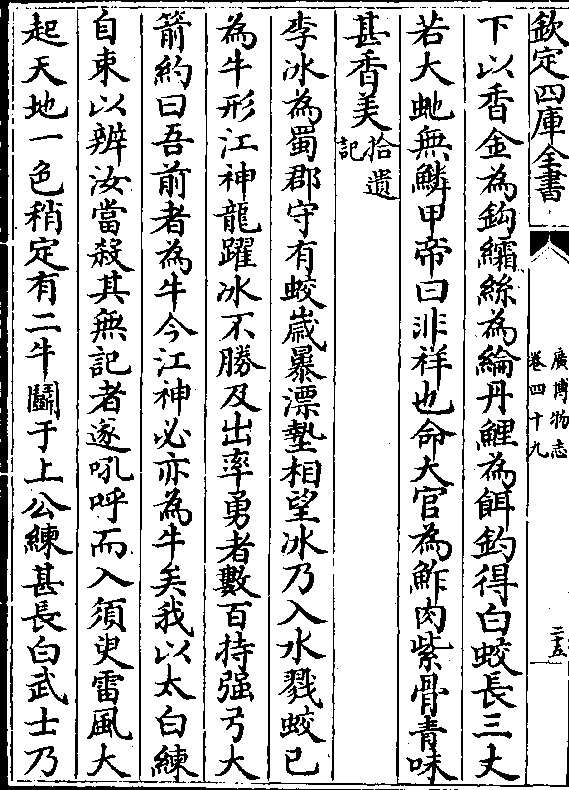 欽定四庫全書
廣博物志
卷四十九
二五
下以香金為鈎䌥絲為綸丹鯉為餌釣得白蛟長三丈
若大虵無鱗甲帝曰非祥也命大官為鮓肉紫骨青味
甚香美拾遺記
李冰為蜀郡守有蛟歲暴漂墊相望冰乃入水戮蛟已
為牛形江神龍躍冰不勝及出率勇者數百持强弓大
箭約曰吾前者為牛今江神必亦為牛矣我以太白練
自束以辨汝當殺其無記者遂吼呼而入須臾雷風大
起天地一色稍定有二牛鬬于上公練甚長白武士乃